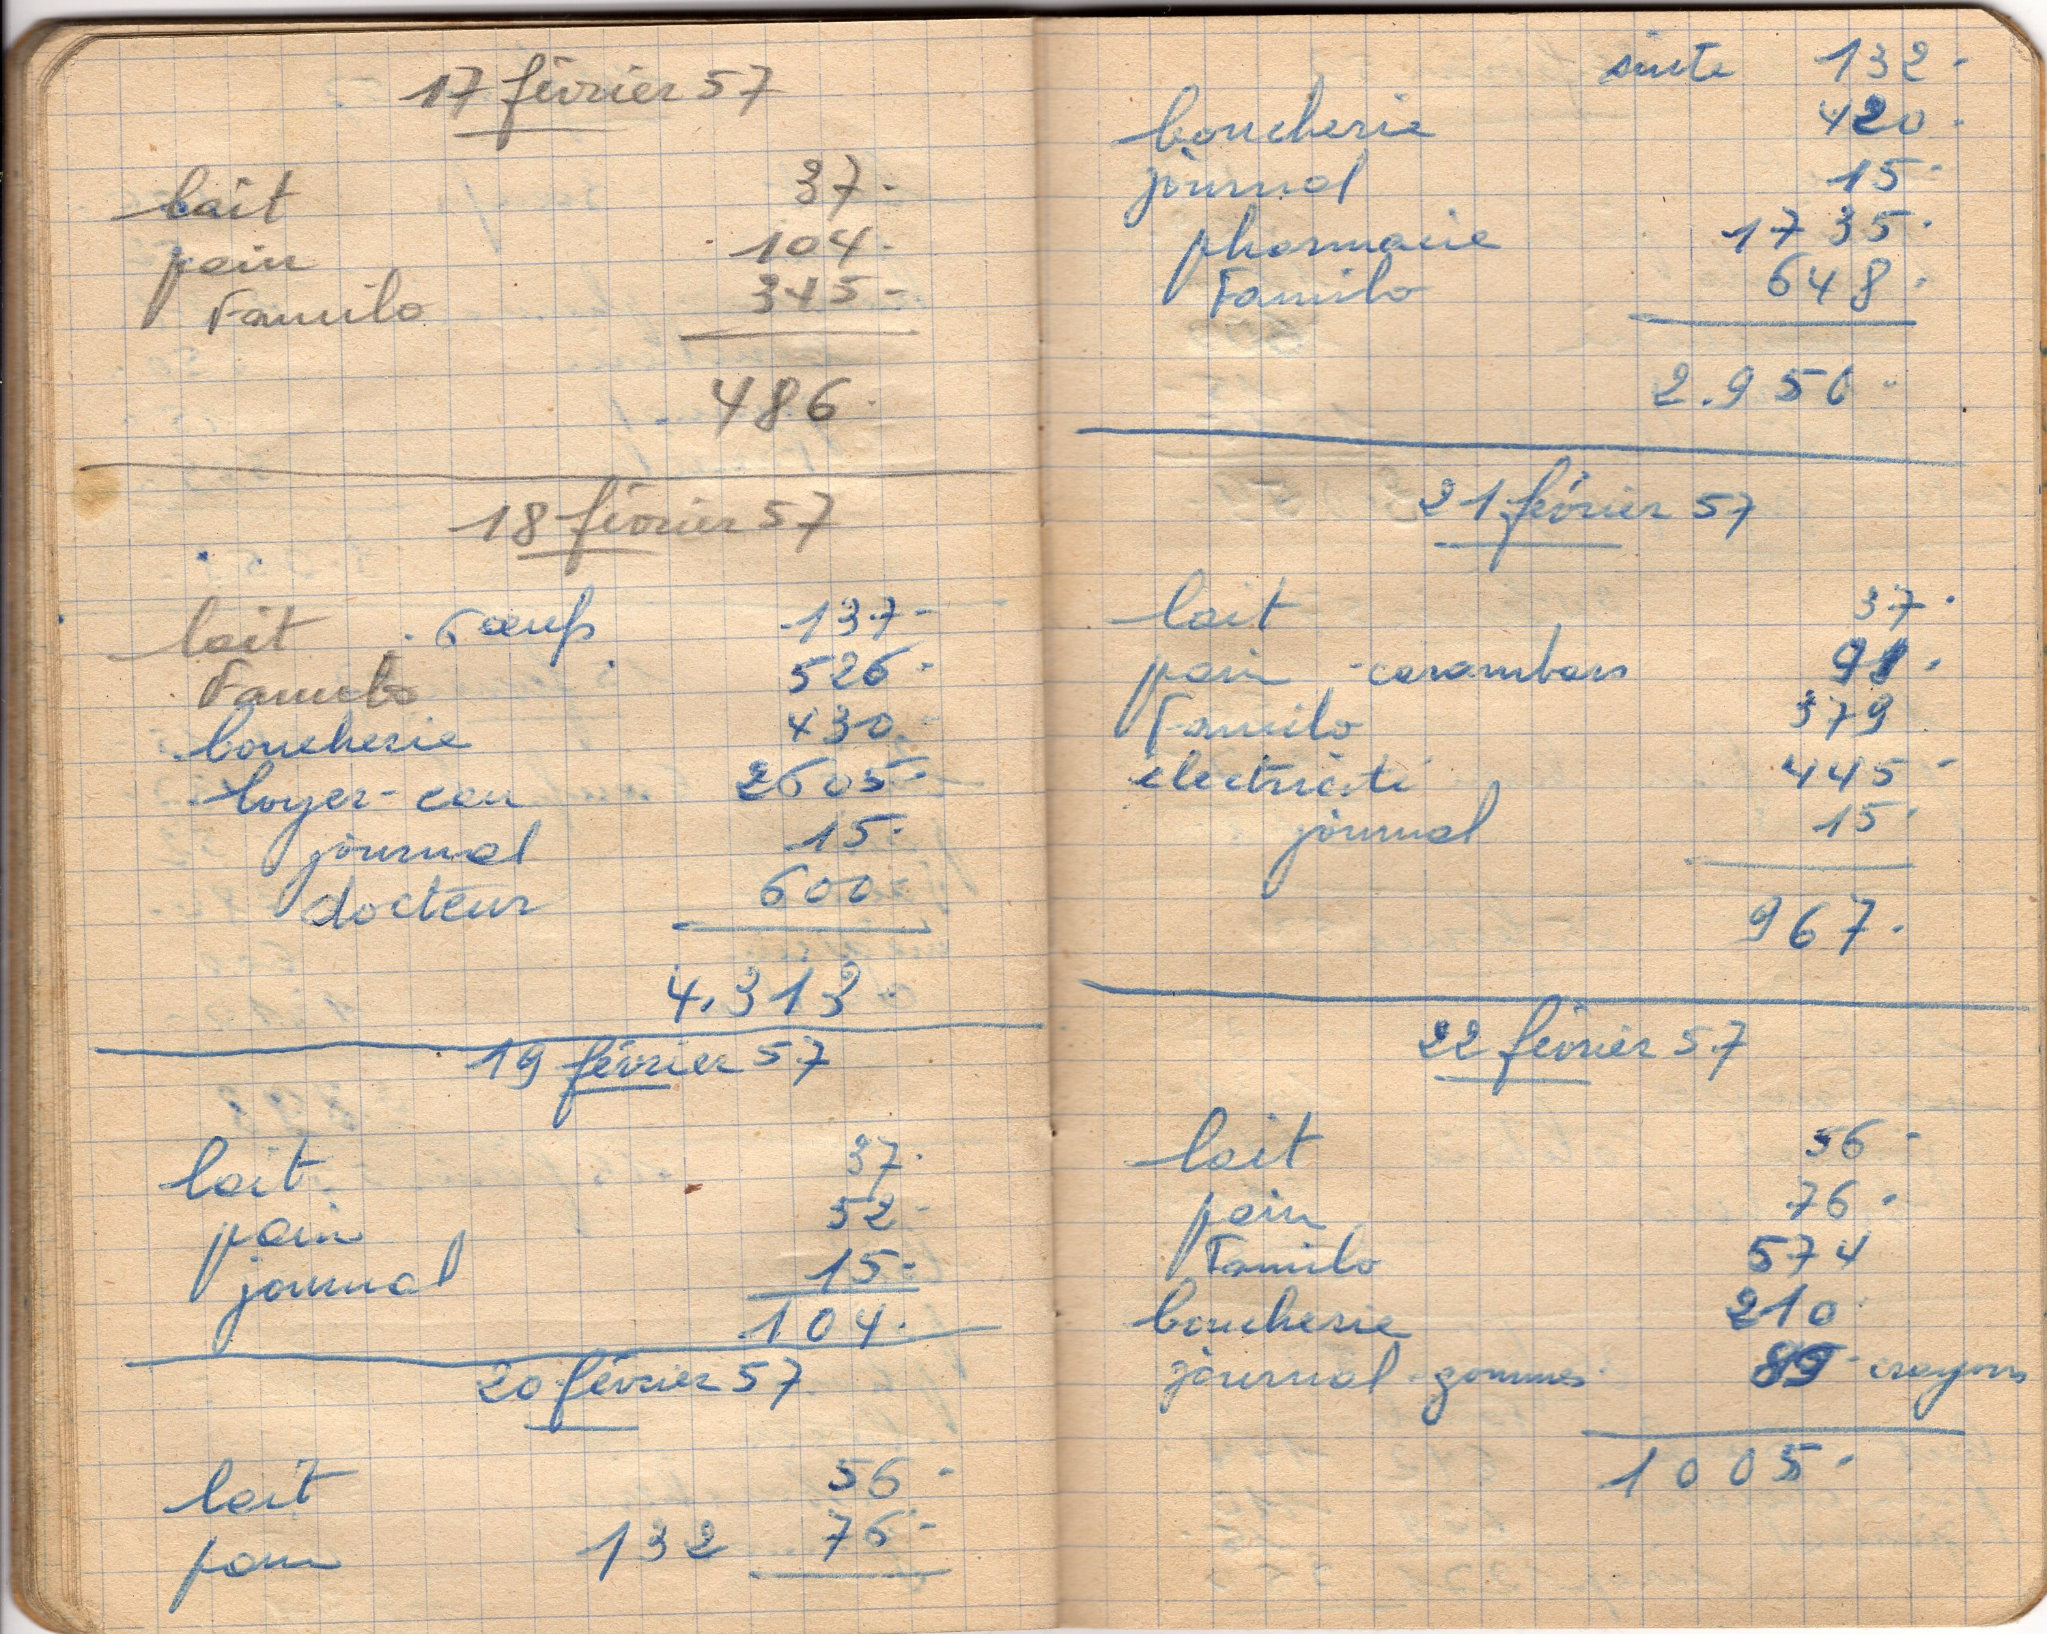 17 février 57
lait 37.
pain 104.
Familo 345-
486.
18 février 57
lait . 6 œufs 137-
Familo 526.
boucherie 430.
loyer-eau 2605-
journal 15.
docteur 600-
4.313
19 février 57
lait 37.
pain 52-
journal 15-
104.
20 février 57
lait 56-
pain 132 76-
suite 132-
boucherie 420.
journal 15.
pharmacie 1735.
Familo 648.
2.956-
21 février 57
lait 37.
pain - carambars 91.
Familo 379
électricité 445-
journal 15.
967.
22 février 57
lait 56-
pain 76.
Familo 574
boucherie 210.
journal - gommes 89 - crayons
1005.